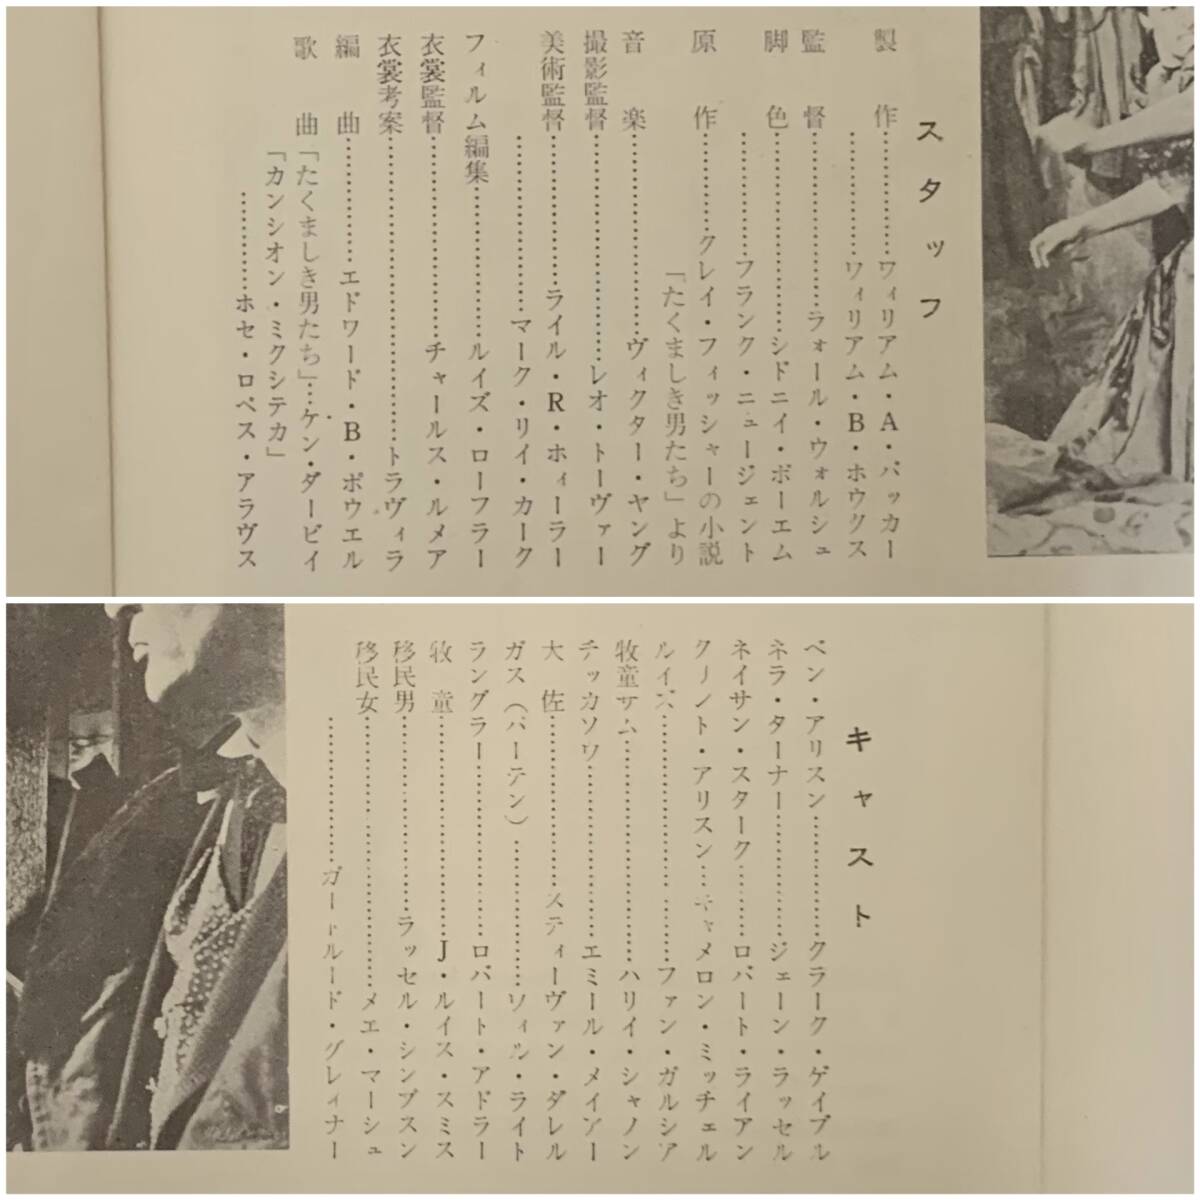 スタッフ
製作…………ウィリアム・A・バッカー
…………ウィリアム・B・ホウクス
監督………………ラォール・ウォルシュ
脚色………………シドニイ・ボーエム
…………フランク・ニュージェント
原作…………クレイ・フィッシャーの小説
「たくましき男たち」より
音楽………………ヴィクター・ヤング
撮影監督………………レオ・トーヴァー
美術監督…………ライル・R・ホィーラー
…………マーク・リイ・カーク
フィルム編集…………ルイズ・ローフラー
衣裳監督………………チャールス・ルメア
衣裳考案………………………トラヴィラ
編曲…………エドワード・B・ポウエル
歌曲「たくましき男たち」…ケン・ダービイ
「カンシオン・ミクシテカ」
…………ホセ・ロペス・アラヴス
キャスト
ベン・アリスン…………クラーク・ゲイブル
ネラ・ターナー…………ジェーン・ラッセル
ネイサン・スターク………ロバート・ライアン
クリント・アリスン…キャメロン・ミッチェル
ルイズ………………………ファン・ガルシア
牧童サム…………………ハリイ・シャノン
チッカソワ………………エミール・メイヤー
大佐………………スティーヴァン・ダレル
ガス（バーテン）…………ウィル・ライト
ラングラー………………ロバート・アドラー
牧童………………………J・ルイス・スミス
移民男…………………ラッセル・シンプスン
移民女………………………メエ・マーシュ
………………ガートルード・グレィナー